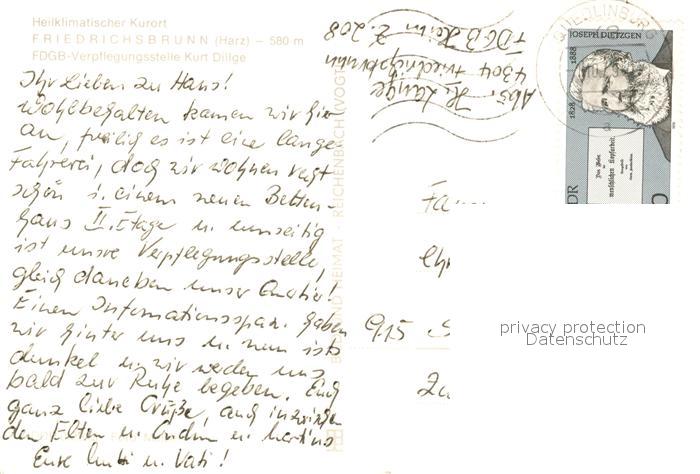 Heilklimatischer Kurort
FRIEDRICHSBRUNN (Harz) – 580 m
FDGB-Verpflegungsstelle Kurt Dillge
Ihr Lieben zu Haus!
Wohlbehalten kamen wir hier
an, freilich es ist eine lange
Fahrerei, doch wir wohnen recht
schön i. einem neuen Betten-
haus II. Etage u. umseitig
ist unsre Verpflegungsstelle,
gleich daneben unser Quartier!
Einen Informationsspaz. haben
wir hinter uns u. nun ists
dunkel u. wir werden uns
bald zur Ruhe begeben. Euch
ganz liebe Grüße, auch inzwischen
den Eltern u. u.
Eure Mutti u. Vati!
Abs. H. Lange
4304 Friedrichsbrunn
FDGB Heim Z. 208
BILD UND HEIMAT REICHENBACH (VOGTL)
QUEDLINBURG
JOSEPH DIETZGEN
1828 1888
Das Wesen
der
menschlichen Kopfarbeit.
DDR
Fa
915
Zu
privacy protection
Datenschutz